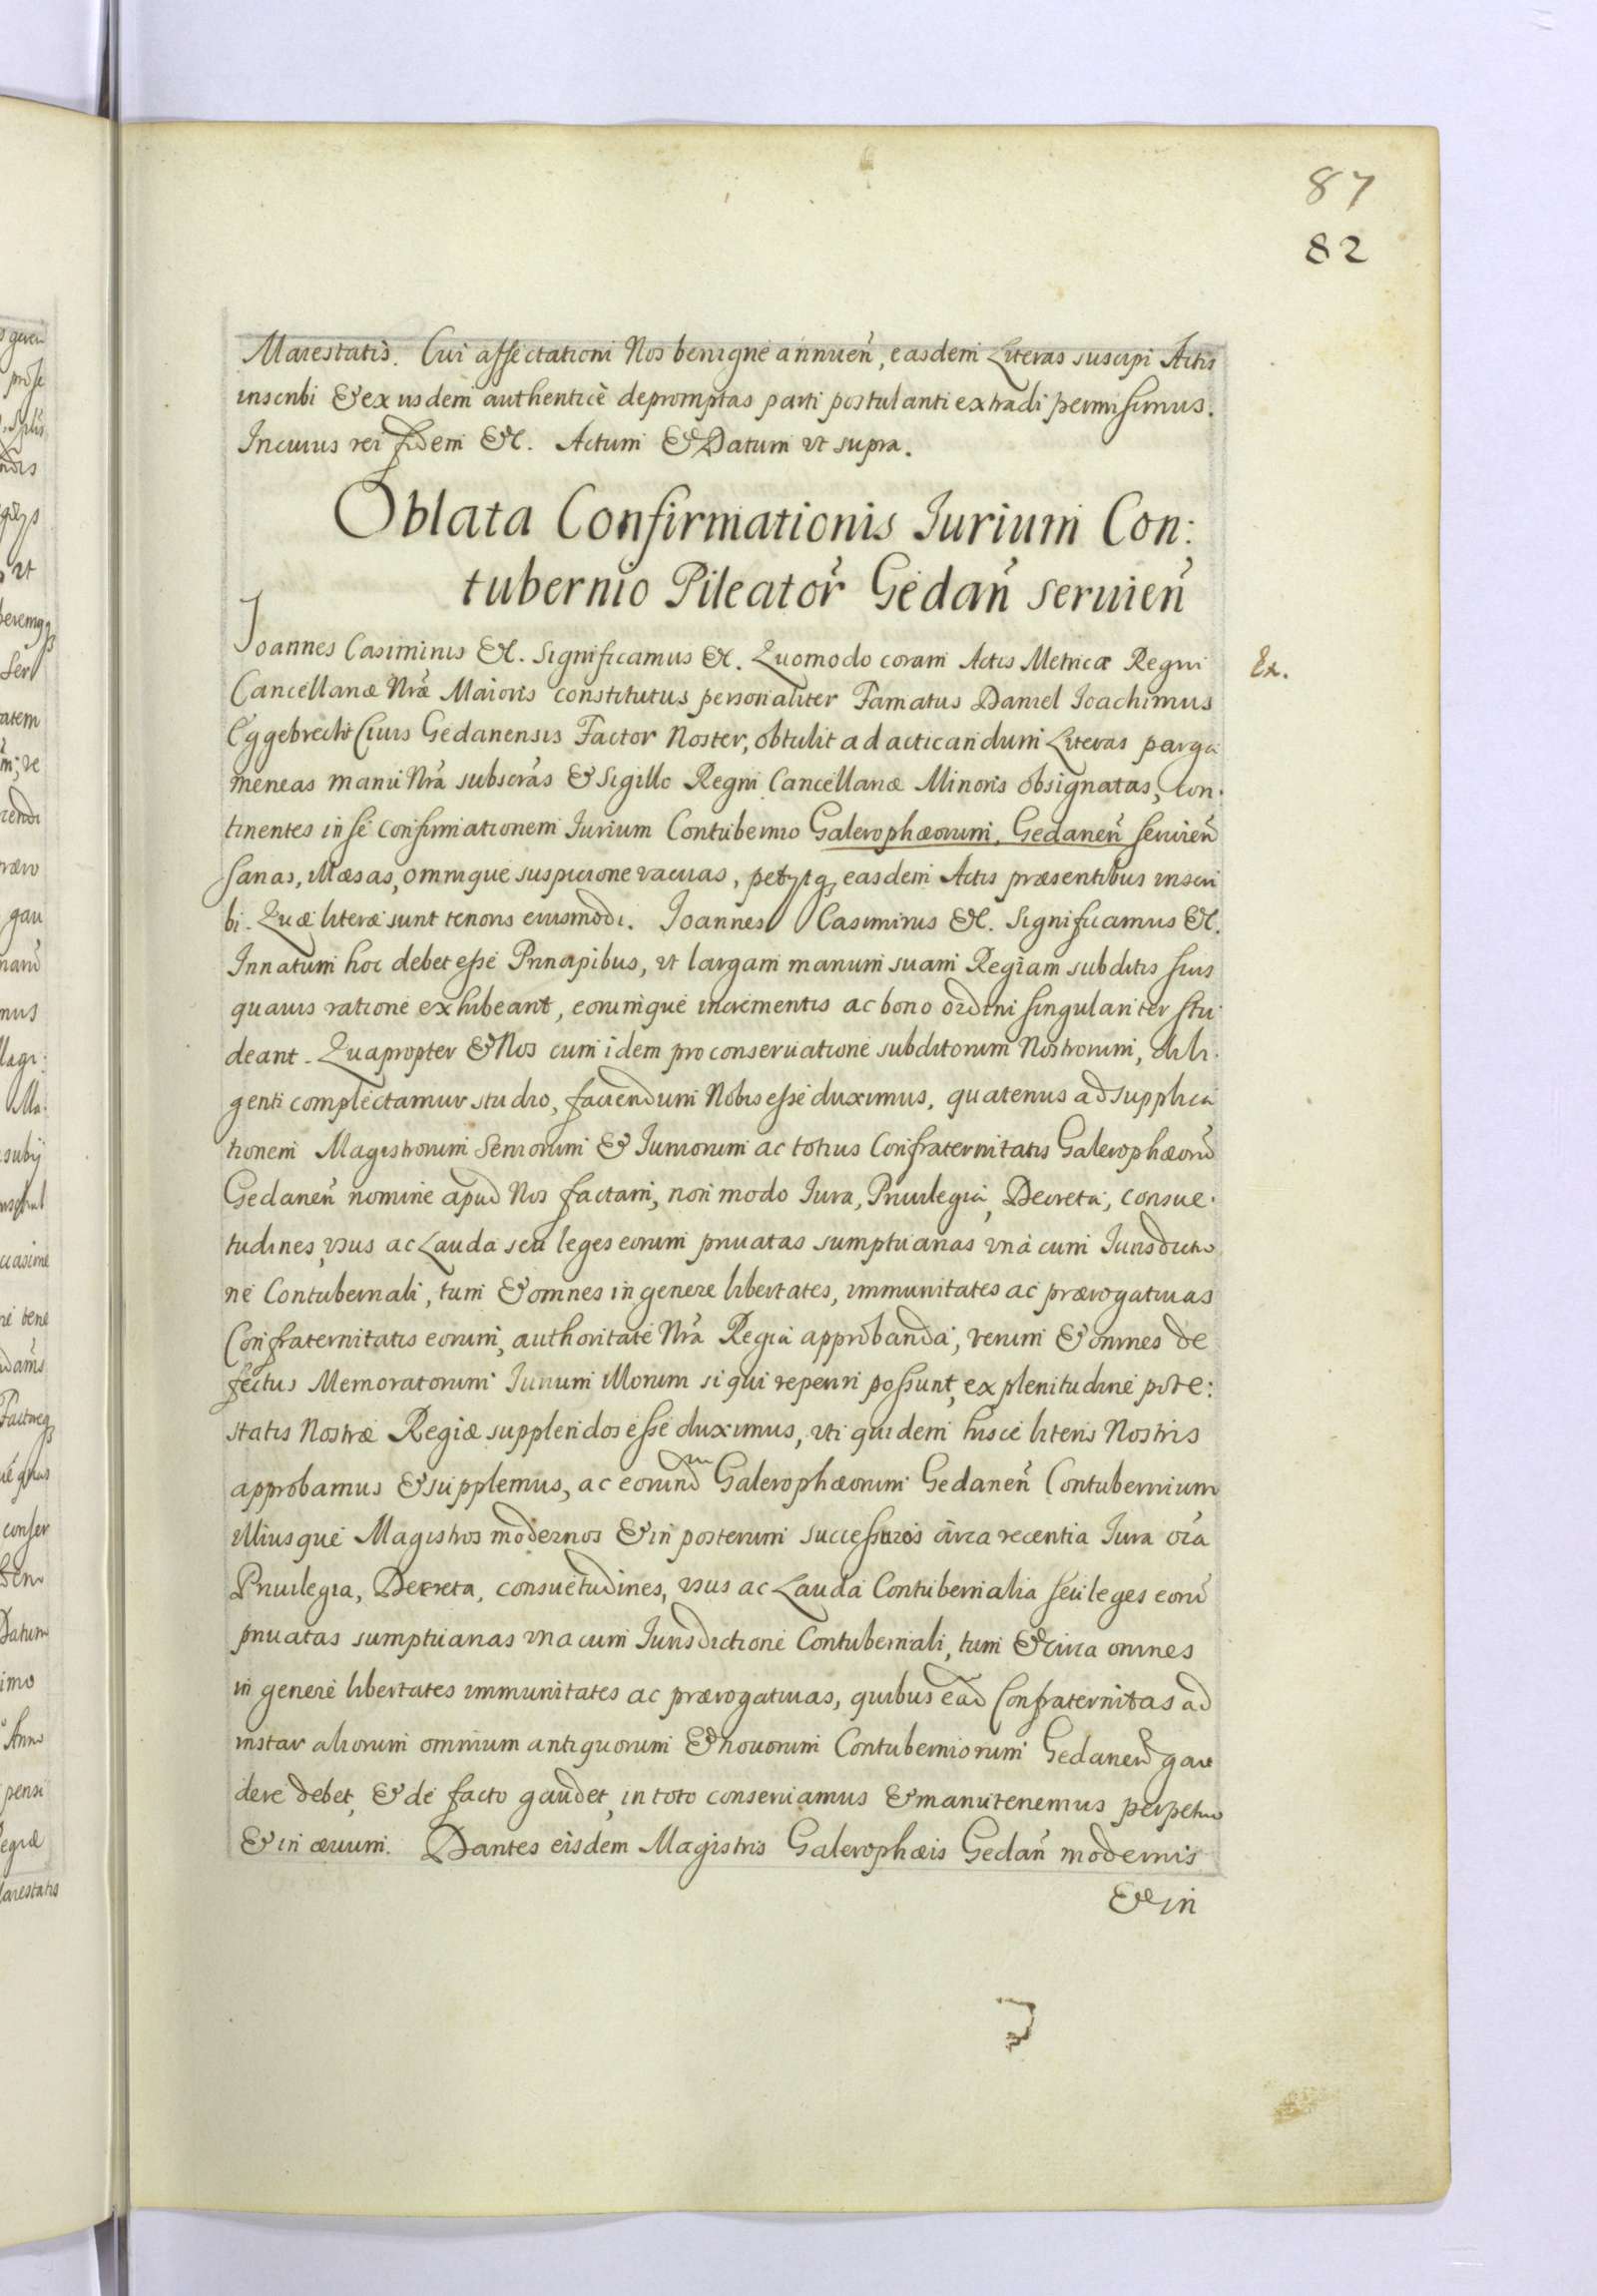 87
82
Maiestatis. Cui affectationi Nos benigne annuen̄, easdem Literas suscipi Actis
inscribi & ex ijsdem authenticè depromptas parti postulanti extradi permisimus.
In cuius rei fidem &c. Actum & Datum vt supra.
Oblata Confirmationis Iurium Con:
tubernio Pileator̄ Gedan̄ seruien̄
Ioannes Casimirus &c. Significamus &c. Quomodo coram Actis Metricæ Regni
Ex.
Cancellariæ Nr̄æ Maioris constitutus personaliter Famatus Daniel Ioachimus
Eggebrecht Ciuis Gedanensis Factor Noster, obtulit ad acticandum Literas perga
meneas manu Nr̄a subscr̄as & Sigillo Regni Cancellariæ Minoris obsignatas, Con:
tinentes in se confirmationem Iurium Contubernio Galerophæorum, Gedanen̄ seruien̄
sanas, illæsas, omnique suspicione vacuas, petijtq3 easdem Actis præsentibus inscri
bi. Quæ literæ sunt tenoris eiusmodi. Ioannes Casimirus &c. Significamus &c.
Innatum hoc debet esse Principibus, vt largam manum suam Regiam subditis suis
quauis ratione exhibeant, eorumque incrementis ac bono ordini singulariter stu
deant. Quapropter & Nos cum idem pro conseruatione subditorum Nostrorum, dili:
genti complectamur studio, faciendum Nobis esse duximus, quatenus ad supplica
tionem Magistrorum Seniorum & Iuniorum ac totius Confraternitatis Galerophæorū
Gedanen̄ nomine apud Nos factam, non modo Iura, Priuilegia, Decreta, consue:
tudines, vsus ac Lauda seu leges eorum priuatas sumptuarias vnà cum Iurisdictio
ne Contubernali, tum & omnes in genere libertates, immunitates ac prærogatiuas
Confraternitatis eorum, authoritate Nr̄a Regia approbanda, verum & omnes de
fectus Memoratorum Iurium illorum si qui reperiri possunt, ex plenitudine pote:
statis Nostræ Regiæ supplendos esse duximus, vti quidem hisce literis Nostris
approbamus & supplemus, ac eorund̄m Galerophæorum Gedanen̄ Contubernium
illiusque Magistros modernos & in posterum successuros circa recentia Iura oīa
Priuilegia, Decreta, consuetudines, vsus ac Lauda Contubernalia seu leges eorū
priuatas sumptuarias vna cum Iurisdictione Contubernali, tum & circa omnes
in genere libertates immunitates ac prærogatiuas, quibus ead̄ Confraternitas ad
instar aliorum omnium antiquorum & nouorum Contuberniorum Gedanen̄ gau
dere debet, & de facto gaudet, in toto conseruamus & manutenemus perpetuo
& in æuum. Dantes eisdem Magistris Galerophæis Gedan̄ modernis
& in